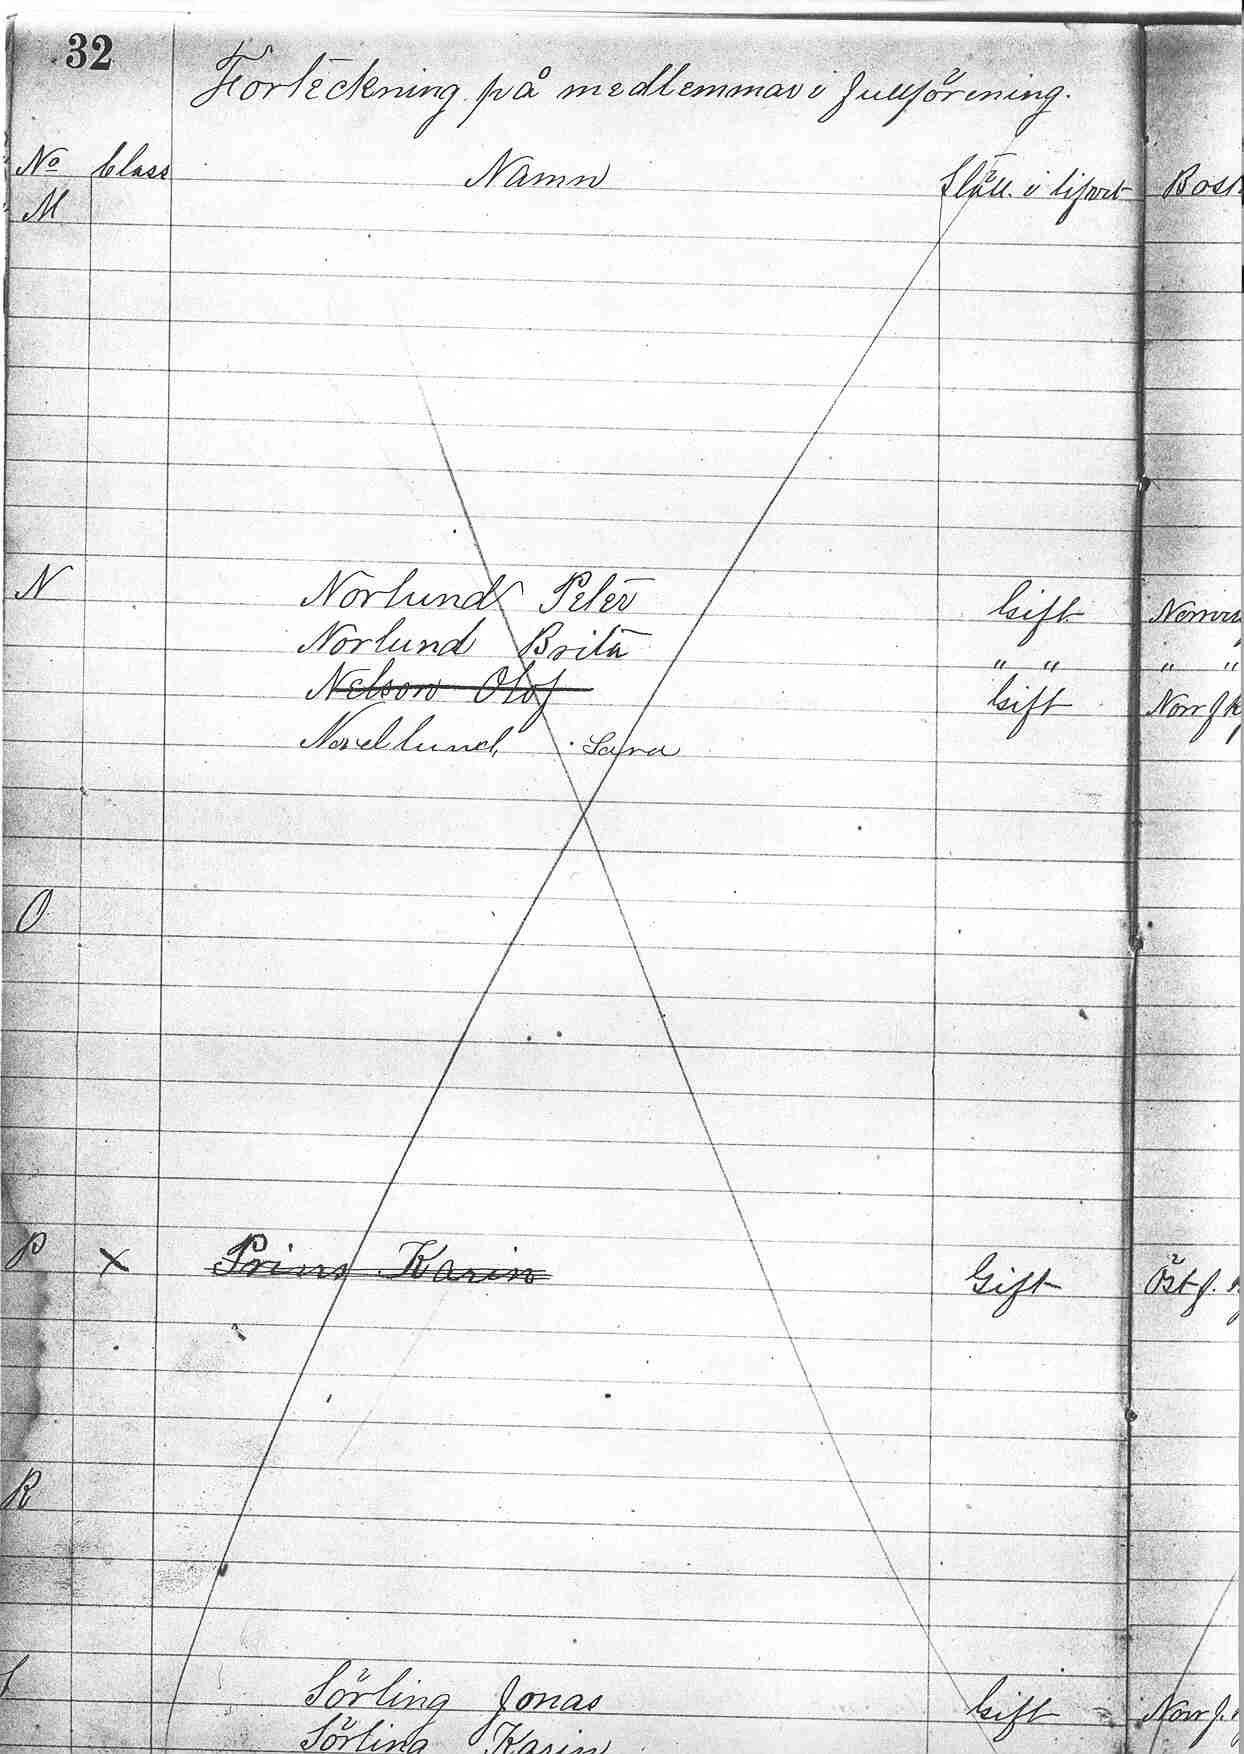 32
Förteckning på medlemmar i full förening.
No Class Namn Ställ. i lifvet
M
N Norlund Peter Gift
Norlund Brita " "
Nelson Olof Gift
Nordlund Sara
O
P X Prins Karin Gift Öst f.
R
S Sörling Jonas Gift Norr f.
Sörling Karin